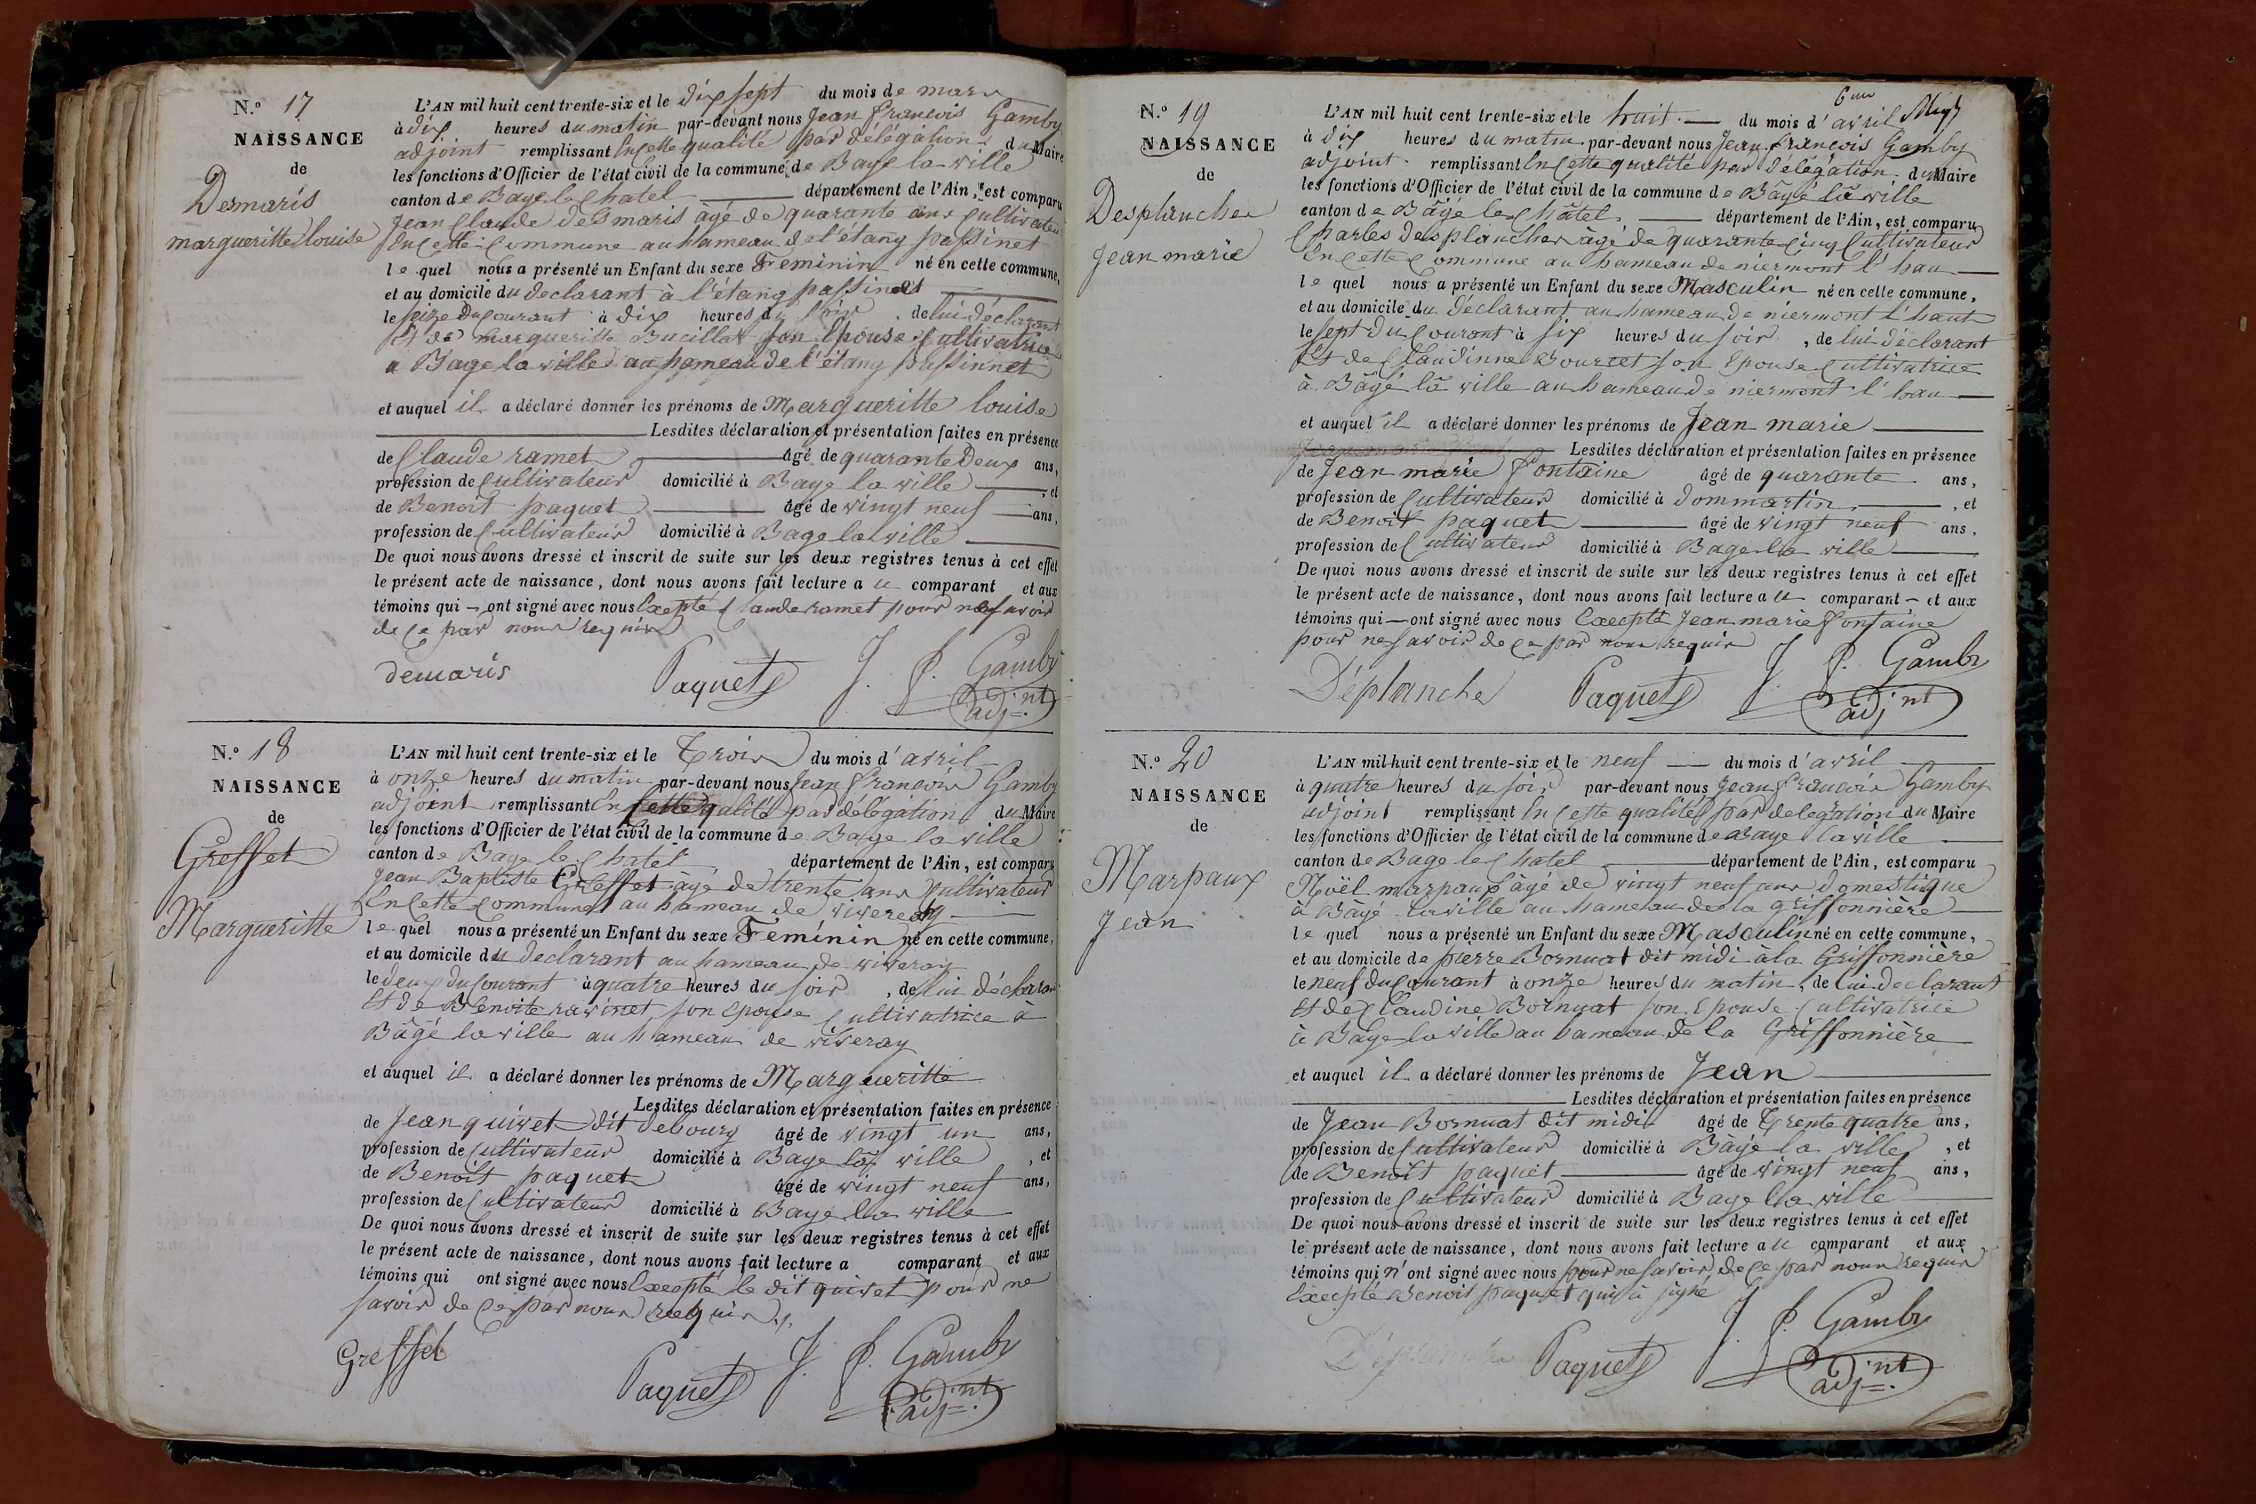 N.° 17
NAISSANCE
de
Desmaris
margueritte louise
L'AN mil huit cent trente-six et le dix sept du mois de mars
à dix heures du matin par-devant nous Jean francois Gamby
adjoint remplissant En cette qualité par délégation du Maire
les fonctions d'Officier de l'état civil de la commune de Bage la ville
canton de Bage le Chatel département de l'Ain, est comparu
Jean Claude desmaris âgé de quarante ans cultivateur
En cette Commune au hameau de l'étang passinet
le quel nous a présenté un Enfant du sexe Feminin né en cette commune,
et au domicile du declarant à l'étang passinet
le seize Du courant à dix heures du soir de lui déclarant
Et de margueritte Bucillat son Epouse Cultivatrice
a Bage la ville au hameau de l'étang passinnet
et auquel il a déclaré donner les prénoms de Margueritte louise
Lesdites déclaration et présentation faites en présence
de Claude ramet âgé de quarante Deux ans,
profession de Cultivateur domicilié à Bage la ville , et
de Benoit paquet âgé de vingt neuf ans,
profession de Cultivateur domicilié à Bage la ville
De quoi nous avons dressé et inscrit de suite sur les deux registres tenus à cet effet
le présent acte de naissance, dont nous avons fait lecture au comparant et aux
témoins qui ont signé avec nous Excepté Claude ramet pour ne savoir
de ce par nous requis
demaris Paquet J. f. Gamby
adj.nt
N.° 18
NAISSANCE
de
Greffet
Margueritte
L'AN mil huit cent trente-six et le Trois du mois d'avril
à onze heures du matin par-devant nous Jean francois Gamby
adjoint remplissant En cette qalité par délégation du Maire
les fonctions d'Officier de l'état civil de la commune de Bage la ville
canton de Bage le Chatel département de l'Ain, est comparu
Jean Baptiste Greffet âgé de trente ans Cultivateur
En cette Commune au hameau de viverey
le quel nous a présenté un Enfant du sexe Feminin né en cette commune,
et au domicile du declarant au hameau de viveray
le deux du Courant à quatre heures du soir , de lui déclarant
Et de Benoite ravinet, son Epouse Cultivatrice à
Bâgé la ville au hameau de viveray
et auquel il a déclaré donner les prénoms de Margueritte
Lesdites déclaration et présentation faites en présence
de Jean quivet dit debourg âgé de vingt un ans,
profession de Cultivateur domicilié à Bage la ville , et
de Benoit paquet âgé de vingt neuf ans,
profession de Cultivateur domicilié à Bage la ville
De quoi nous avons dressé et inscrit de suite sur les deux registres tenus à cet effet
le présent acte de naissance, dont nous avons fait lecture a comparant et aux
témoins qui ont signé avec nous Excepté le dit quivet pour ne
savoir de ce par nous requis
Greffet Paquet J. f. Gamby
adj.nt
N.° 19
NAISSANCE
de
Desplanches
Jean marie
L'AN mil huit cent trente-six et le huit du mois d'avril
à dix heures du matin par-devant nous Jean francois Gamby
adjoint remplissant En Cette qualité par délégation du Maire
les fonctions d'Officier de l'état civil de la commune de Bâgé la ville
canton de Bâgé le Châtel département de l'Ain, est comparu
Charles desplanches âgé de quarante Cinq Cultivateur
En Cette Commune au hameau de niermont l'hau
le quel nous a présenté un Enfant du sexe Masculin né en cette commune,
et au domicile du déclarant au hameau de niermont l'haut
le sept Du Courant à six heures du soir , de lui déclarant
Et de Claudinne Bourcet son Epouse Cultivatrice
à Bâgé la ville au hameau de niermont l'hau
et auquel il a déclaré donner les prénoms de Jean marie
Lesdites déclaration et présentation faites en présence
de Jean marie fontaine âgé de quarante ans,
profession de Cultivateur domicilié à dommartin , et
de Benoit paquet âgé de vingt neuf ans,
profession de Cultivateur domicilié à Bage la ville
De quoi nous avons dressé et inscrit de suite sur les deux registres tenus à cet effet
le présent acte de naissance, dont nous avons fait lecture au comparant et aux
témoins qui ont signé avec nous Excepté Jean marie fontaine
pour ne savoir de ce par nous requis
Déplanche Paquet J. f. Gamby
adj.nt
N.° 20
NAISSANCE
de
Marpaux
Jean
L'AN mil huit cent trente-six et le neuf du mois d'avril
à quatre heures du soir par-devant nous Jean francois Gamby
adjoint remplissant En Cette qualité par delegation du Maire
les fonctions d'Officier de l'état civil de la commune de Bage la ville
canton de Bage le Chatel département de l'Ain, est comparu
Noël marpaux âgé de vingt neuf ans domestique
à Bâgé la ville au hameau de la griffonnière
le quel nous a présenté un Enfant du sexe Masculin né en cette commune,
et au domicile de pierre Bornuat dit midi à la Griffonnière
le neuf du Courant à onze heures du matin , de lui declarant
Et de Claudine Bornuat son Epouse Cultivatrice
à Bage la ville au hameau de la Griffonnière
et auquel il a déclaré donner les prénoms de Jean
Lesdites déclaration et présentation faites en présence
de Jean Bornuat dit midi âgé de Trente quatre ans,
profession de Cultivateur domicilié à Bâgé la ville , et
de Benoit paquet âgé de vingt neuf ans,
profession de Cultivateur domicilié à Bage la ville
De quoi nous avons dressé et inscrit de suite sur les deux registres tenus à cet effet
le présent acte de naissance, dont nous avons fait lecture au comparant et aux
témoins qui n'ont signé avec nous pour ne savoir de ce par nous requis
Excepté Benoit paquet qui a signé
Paquet J. f. Gamby
adj.nt